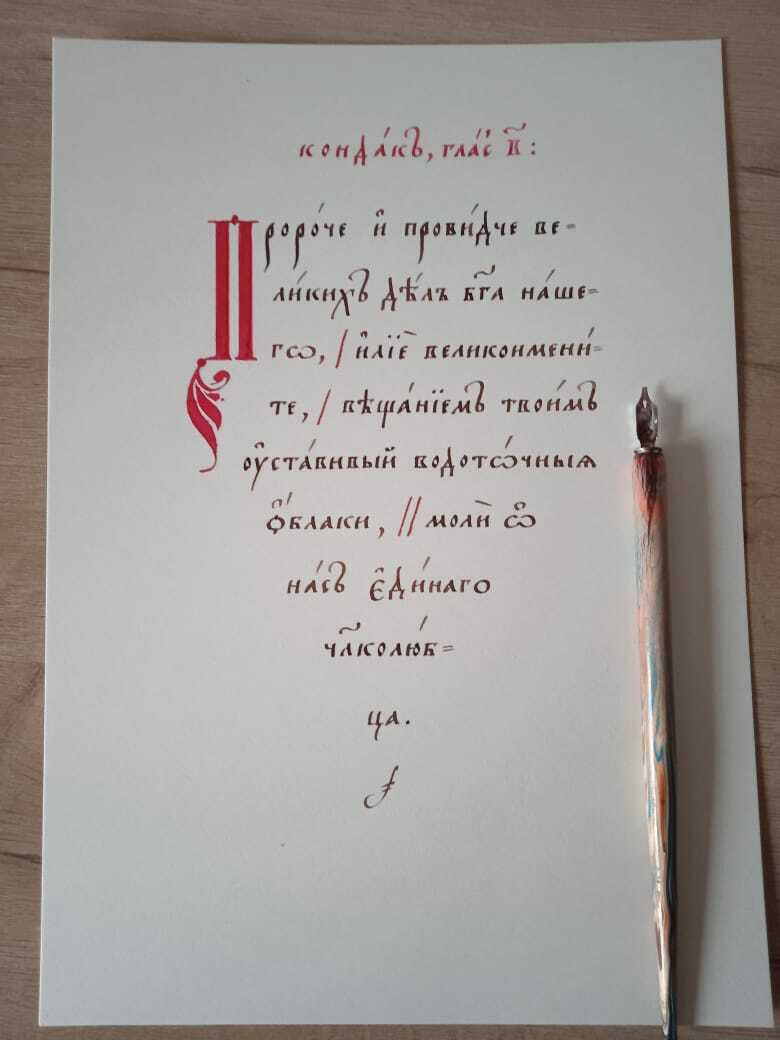 конда́къ, гла́съ в҃:
Проро́че и҆ прови́дче ве=
ли́кихъ дѣ́лъ бг҃а на́ше=
гѡ, / и҆лїѐ великоимени́=
те, / вѣща́нїемъ твои́мъ
ᲂу҆ста́вивый водотѡ́чныѧ
ѻ҆́блаки, // молѝ ѡ҆
на́съ є҆ди́наго
чл҃колю́б=
ца.